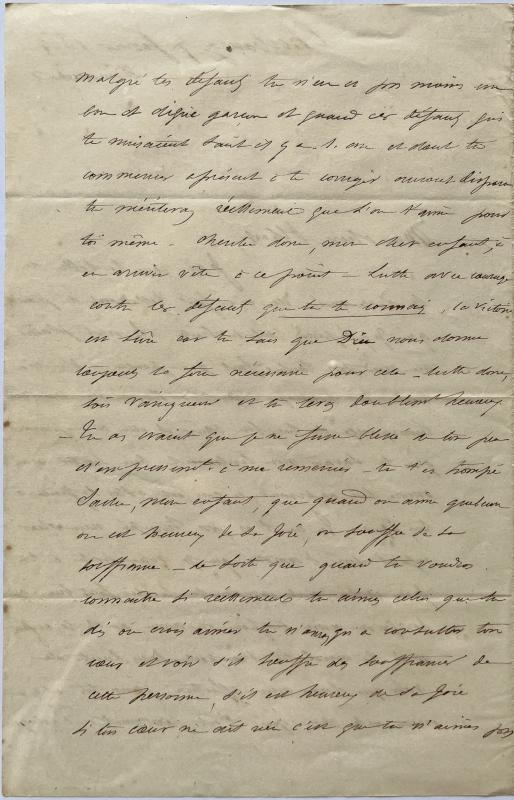 malgré tes défauts tu n'en es pas moins un
bon et digne garçon et quand ces défauts qui
te nuisaient tant il y a 1 an et dont tu
commences à présent à te corriger auront disparu
tu mériteras réellement que l'on t'aime pour
toi même. cherche donc, mon cher enfant, à
en arriver vite à ce point – lutte avec courage
contre les défauts que tu te connais, la victoire
est sûre car tu sais que Dieu nous donne
toujours la force nécessaire pour cela – lutte donc,
sois vainqueur et tu seras doublement heureux
– Tu as craint que je ne fusse blessé de ton peu
d'empressement à me remercier – tu t'es trompé
Sache, mon enfant, que quand on aime quelqu'un
on est heureux de sa joie, on souffre de sa
souffrance – de sorte que quand tu voudras
connaître si réellement tu aimes celui que tu
dis ou crois aimer tu n'auras qu'à consulter ton
cœur et voir s'il souffre des souffrances de
cette personne, s'il est heureux de sa joie
Si ton cœur ne dit rien c'est que tu n'aimes pas